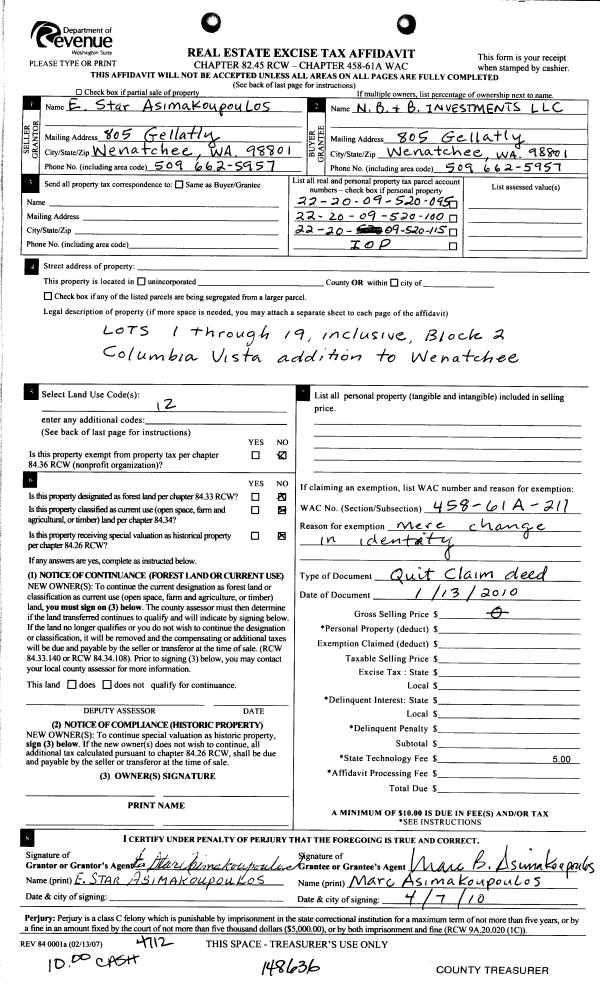 Department of
Revenue
Washington State
PLEASE TYPE OR PRINT
REAL ESTATE EXCISE TAX AFFIDAVIT
CHAPTER 82.45 RCW – CHAPTER 458-61A WAC
This form is your receipt
when stamped by cashier.
THIS AFFIDAVIT WILL NOT BE ACCEPTED UNLESS ALL AREAS ON ALL PAGES ARE FULLY COMPLETED
(See back of last page for instructions)
Check box if partial sale of property
If multiple owners, list percentage of ownership next to name.
1 Name E. Star Asimakoupoulos
SELLER GRANTOR
Mailing Address 805 Gellatly
City/State/Zip Wenatchee, WA. 98801
Phone No. (including area code) 509 662-5957
2 Name N.B. & B. INVESTMENTS LLC
BUYER GRANTEE
Mailing Address 805 Gellatly
City/State/Zip Wenatchee, WA. 98801
Phone No. (including area code) 509 662-5957
3 Send all property tax correspondence to: Same as Buyer/Grantee
Name
Mailing Address
City/State/Zip
Phone No. (including area code)
List all real and personal property tax parcel account
numbers – check box if personal property
22-20-09-520-095
22-20-09-520-100
22-20-09-520-115
IOP
List assessed value(s)
4 Street address of property:
This property is located in unincorporated County OR within city of
Check box if any of the listed parcels are being segregated from a larger parcel.
Legal description of property (if more space is needed, you may attach a separate sheet to each page of the affidavit)
LOTS 1 through 19, inclusive, Block 2
Columbia Vista addition to Wenatchee
5 Select Land Use Code(s):
12
enter any additional codes:
(See back of last page for instructions)
YES NO
Is this property exempt from property tax per chapter
84.36 RCW (nonprofit organization)?
6 YES NO
Is this property designated as forest land per chapter 84.33 RCW?
Is this property classified as current use (open space, farm and
agricultural, or timber) land per chapter 84.34?
Is this property receiving special valuation as historical property
per chapter 84.26 RCW?
If any answers are yes, complete as instructed below.
(1) NOTICE OF CONTINUANCE (FOREST LAND OR CURRENT USE)
NEW OWNER(S): To continue the current designation as forest land or
classification as current use (open space, farm and agriculture, or timber)
land, you must sign on (3) below. The county assessor must then determine
if the land transferred continues to qualify and will indicate by signing below.
If the land no longer qualifies or you do not wish to continue the designation
or classification, it will be removed and the compensating or additional taxes
will be due and payable by the seller or transferor at the time of sale. (RCW
84.33.140 or RCW 84.34.108). Prior to signing (3) below, you may contact
your local county assessor for more information.
This land does does not qualify for continuance.
DEPUTY ASSESSOR DATE
(2) NOTICE OF COMPLIANCE (HISTORIC PROPERTY)
NEW OWNER(S): To continue special valuation as historic property,
sign (3) below. If the new owner(s) does not wish to continue, all
additional tax calculated pursuant to chapter 84.26 RCW, shall be due
and payable by the seller or transferor at the time of sale.
(3) OWNER(S) SIGNATURE
PRINT NAME
7 List all personal property (tangible and intangible) included in selling
price.
If claiming an exemption, list WAC number and reason for exemption:
WAC No. (Section/Subsection) 458-61A-211
Reason for exemption mere change
in identity
Type of Document Quit Claim deed
Date of Document 1/13/2010
Gross Selling Price $ 0
*Personal Property (deduct) $
Exemption Claimed (deduct) $
Taxable Selling Price $
Excise Tax : State $
Local $
*Delinquent Interest: State $
Local $
*Delinquent Penalty $
Subtotal $
*State Technology Fee $ 5.00
*Affidavit Processing Fee $
Total Due $
A MINIMUM OF $10.00 IS DUE IN FEE(S) AND/OR TAX
*SEE INSTRUCTIONS
8 I CERTIFY UNDER PENALTY OF PERJURY THAT THE FOREGOING IS TRUE AND CORRECT.
Signature of
Grantor or Grantor's Agent E. Star Asimakoupoulos
Name (print) E. STAR ASIMAKOUPOULOS
Date & city of signing:
Signature of
Grantee or Grantee's Agent Marc B. Asimakoupoulos
Name (print) Marc Asimakoupoulos
Date & city of signing: 4/7/10
Perjury: Perjury is a class C felony which is punishable by imprisonment in the state correctional institution for a maximum term of not more than five years, or by
a fine in an amount fixed by the court of not more than five thousand dollars ($5,000.00), or by both imprisonment and fine (RCW 9A.20.020 (1C)).
REV 84 0001a (02/13/07) 4712 THIS SPACE - TREASURER'S USE ONLY
10.00 CASH 148636 COUNTY TREASURER